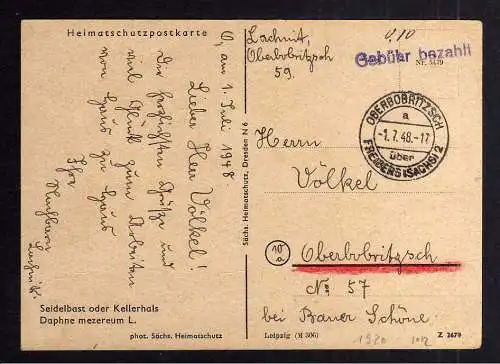 Heimatschutzpostkarte
O, am 1. Juli 1948
Lieber Herr Völkel!
Die herzlichsten Grüße und
viel Glück zum Arbeiten
von Haus zu Haus
Ihr
Nachbar
Lachnit.
Seidelbast oder Kellerhals
Daphne mezereum L.
phot. Sächs. Heimatschutz
Sächs. Heimatschutz, Dresden N 6
Lachnit,
Oberbobritzsch
59.
0,10
Gebühr bezahlt
OBERBOBRITZSCH
a
-1.7.48.-17
über
FREIBERG (SACHS) 2
Herrn
Völkel
10
a
Oberbobritzsch
No 57
bei Bauer Schöne.
Leipzig (M 306)
1920
Z 2679